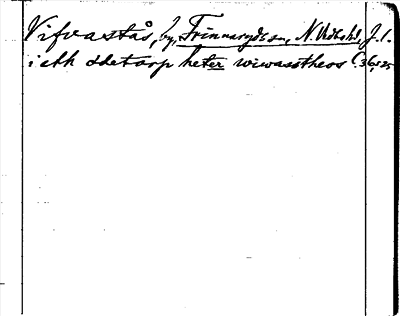 Vifvastås, by, Frinnaryds sn, N. Vedbo hd, J. l.
i eth ödetorp heter wiwasstheos C. 36, 525